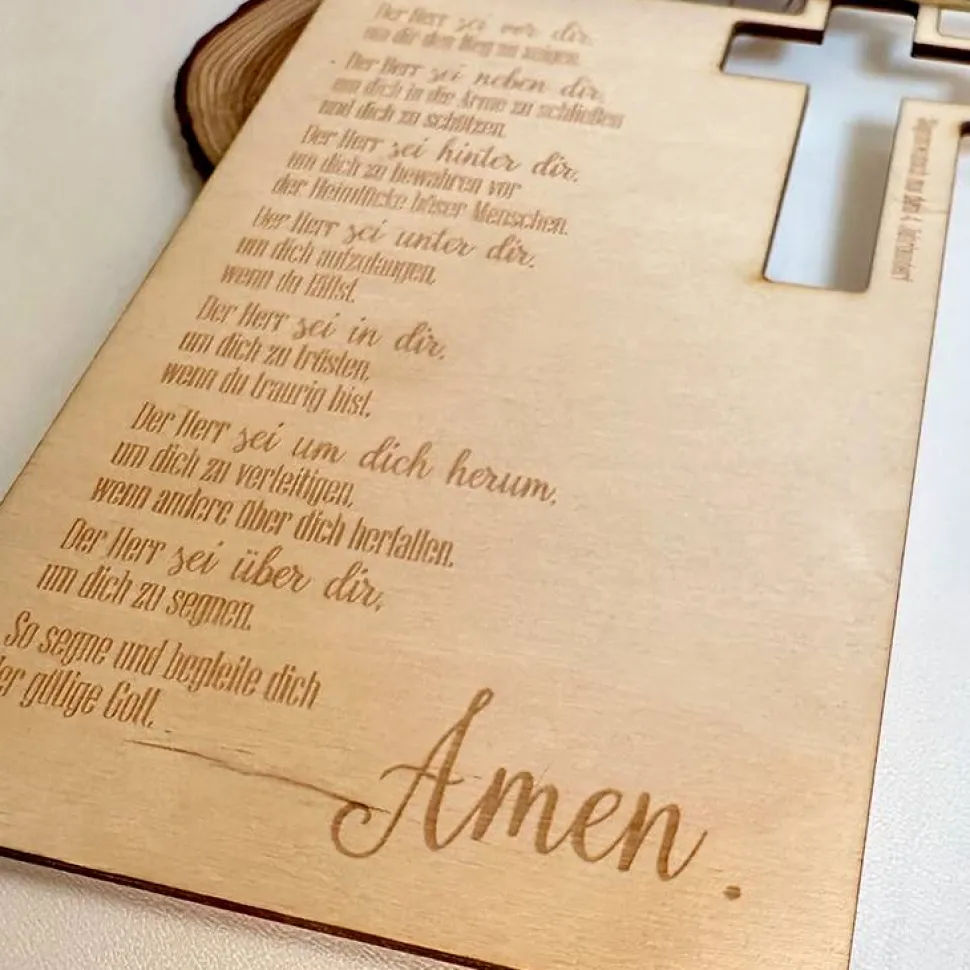 Der Herr sei vor dir,
um dir den Weg zu zeigen.
Der Herr sei neben dir,
um dich in die Arme zu schließen
und dich zu schützen.
Der Herr sei hinter dir,
um dich zu bewahren vor
der Heimtücke böser Menschen.
Der Herr sei unter dir,
um dich aufzufangen,
wenn du fällst.
Der Herr sei in dir,
um dich zu trösten,
wenn du traurig bist.
Der Herr sei um dich herum,
um dich zu verteitigen,
wenn andere über dich herfallen.
Der Herr sei über dir,
um dich zu segnen.
So segne und begleite dich
der gütige Gott.
Amen.
Segenswunsch aus dem 4. Jahrhundert